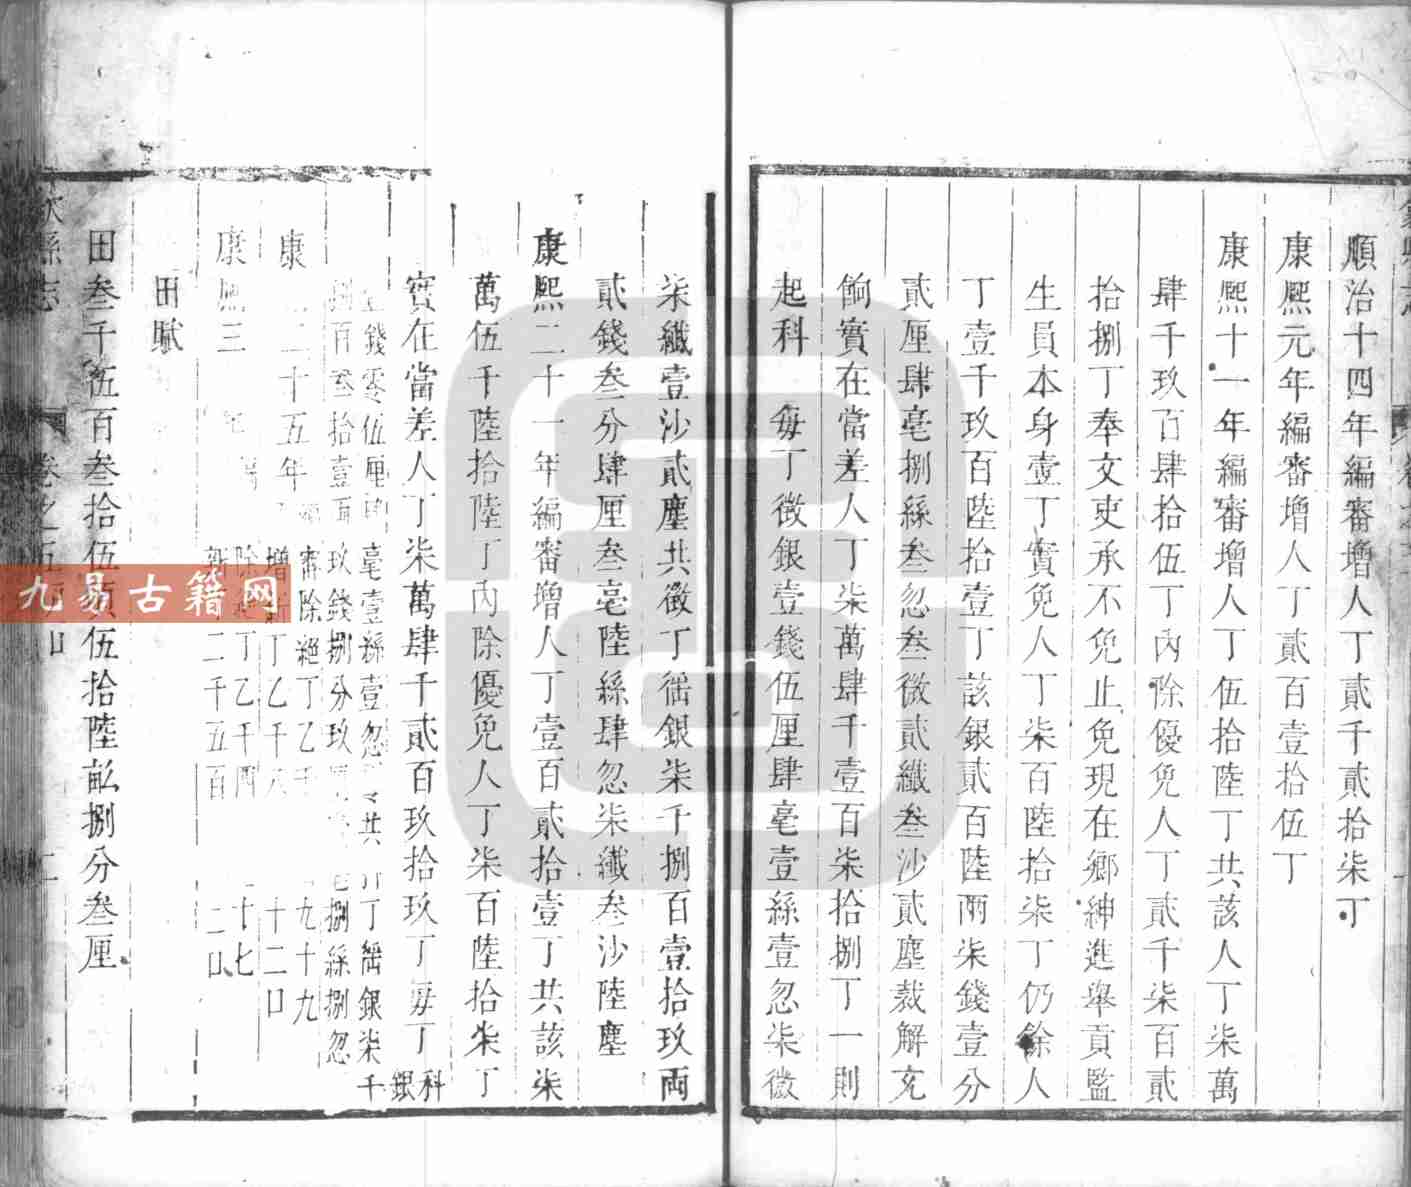 順治十四年編審增人丁貳千貳拾柒丁
康熙元年編審增人丁貳百壹拾伍丁
康熙十一年編審增人丁伍拾陸丁共該人丁柒萬
肆千玖百肆拾伍丁內除優免人丁貳千柒百貳
拾捌丁奉文吏承不免止免現在鄉紳進舉貢監
生員本身壹丁實免人丁柒百陸拾柒丁仍餘人
丁壹千玖百陸拾壹丁該銀貳百陸兩柒錢壹分
貳厘肆毫捌絲叁忽叁微貳纖叁沙貳塵裁解充
餉實在當差人丁柒萬肆千壹百柒拾捌丁一則
起科 每丁徵銀壹錢伍厘肆毫壹絲壹忽柒微
柒纖壹沙貳塵共徵丁徭銀柒千捌百壹拾玖兩
貳錢叁分肆厘叁毫陸絲肆忽柒纖叁沙陸塵
康熙二十一年編審增人丁壹百貳拾壹丁共該柒
萬伍千陸拾陸丁內除優免人丁柒百陸拾柒丁
實在當差人丁柒萬肆千貳百玖拾玖丁每丁科銀
壹錢零伍厘肆毫壹絲壹忽 共 丁徭銀柒千
捌百叁拾壹兩玖錢捌分玖 捌絲捌忽
康 二十五年 審除絕丁乙千 九十九
增 丁乙千六 十二口
康熙三 年 除 丁乙千四 十七
新 二千五百 二口
田賦
田叁千伍百叁拾伍頃伍拾陸畝捌分叁厘
縣志
卷之五
二
九易古籍网